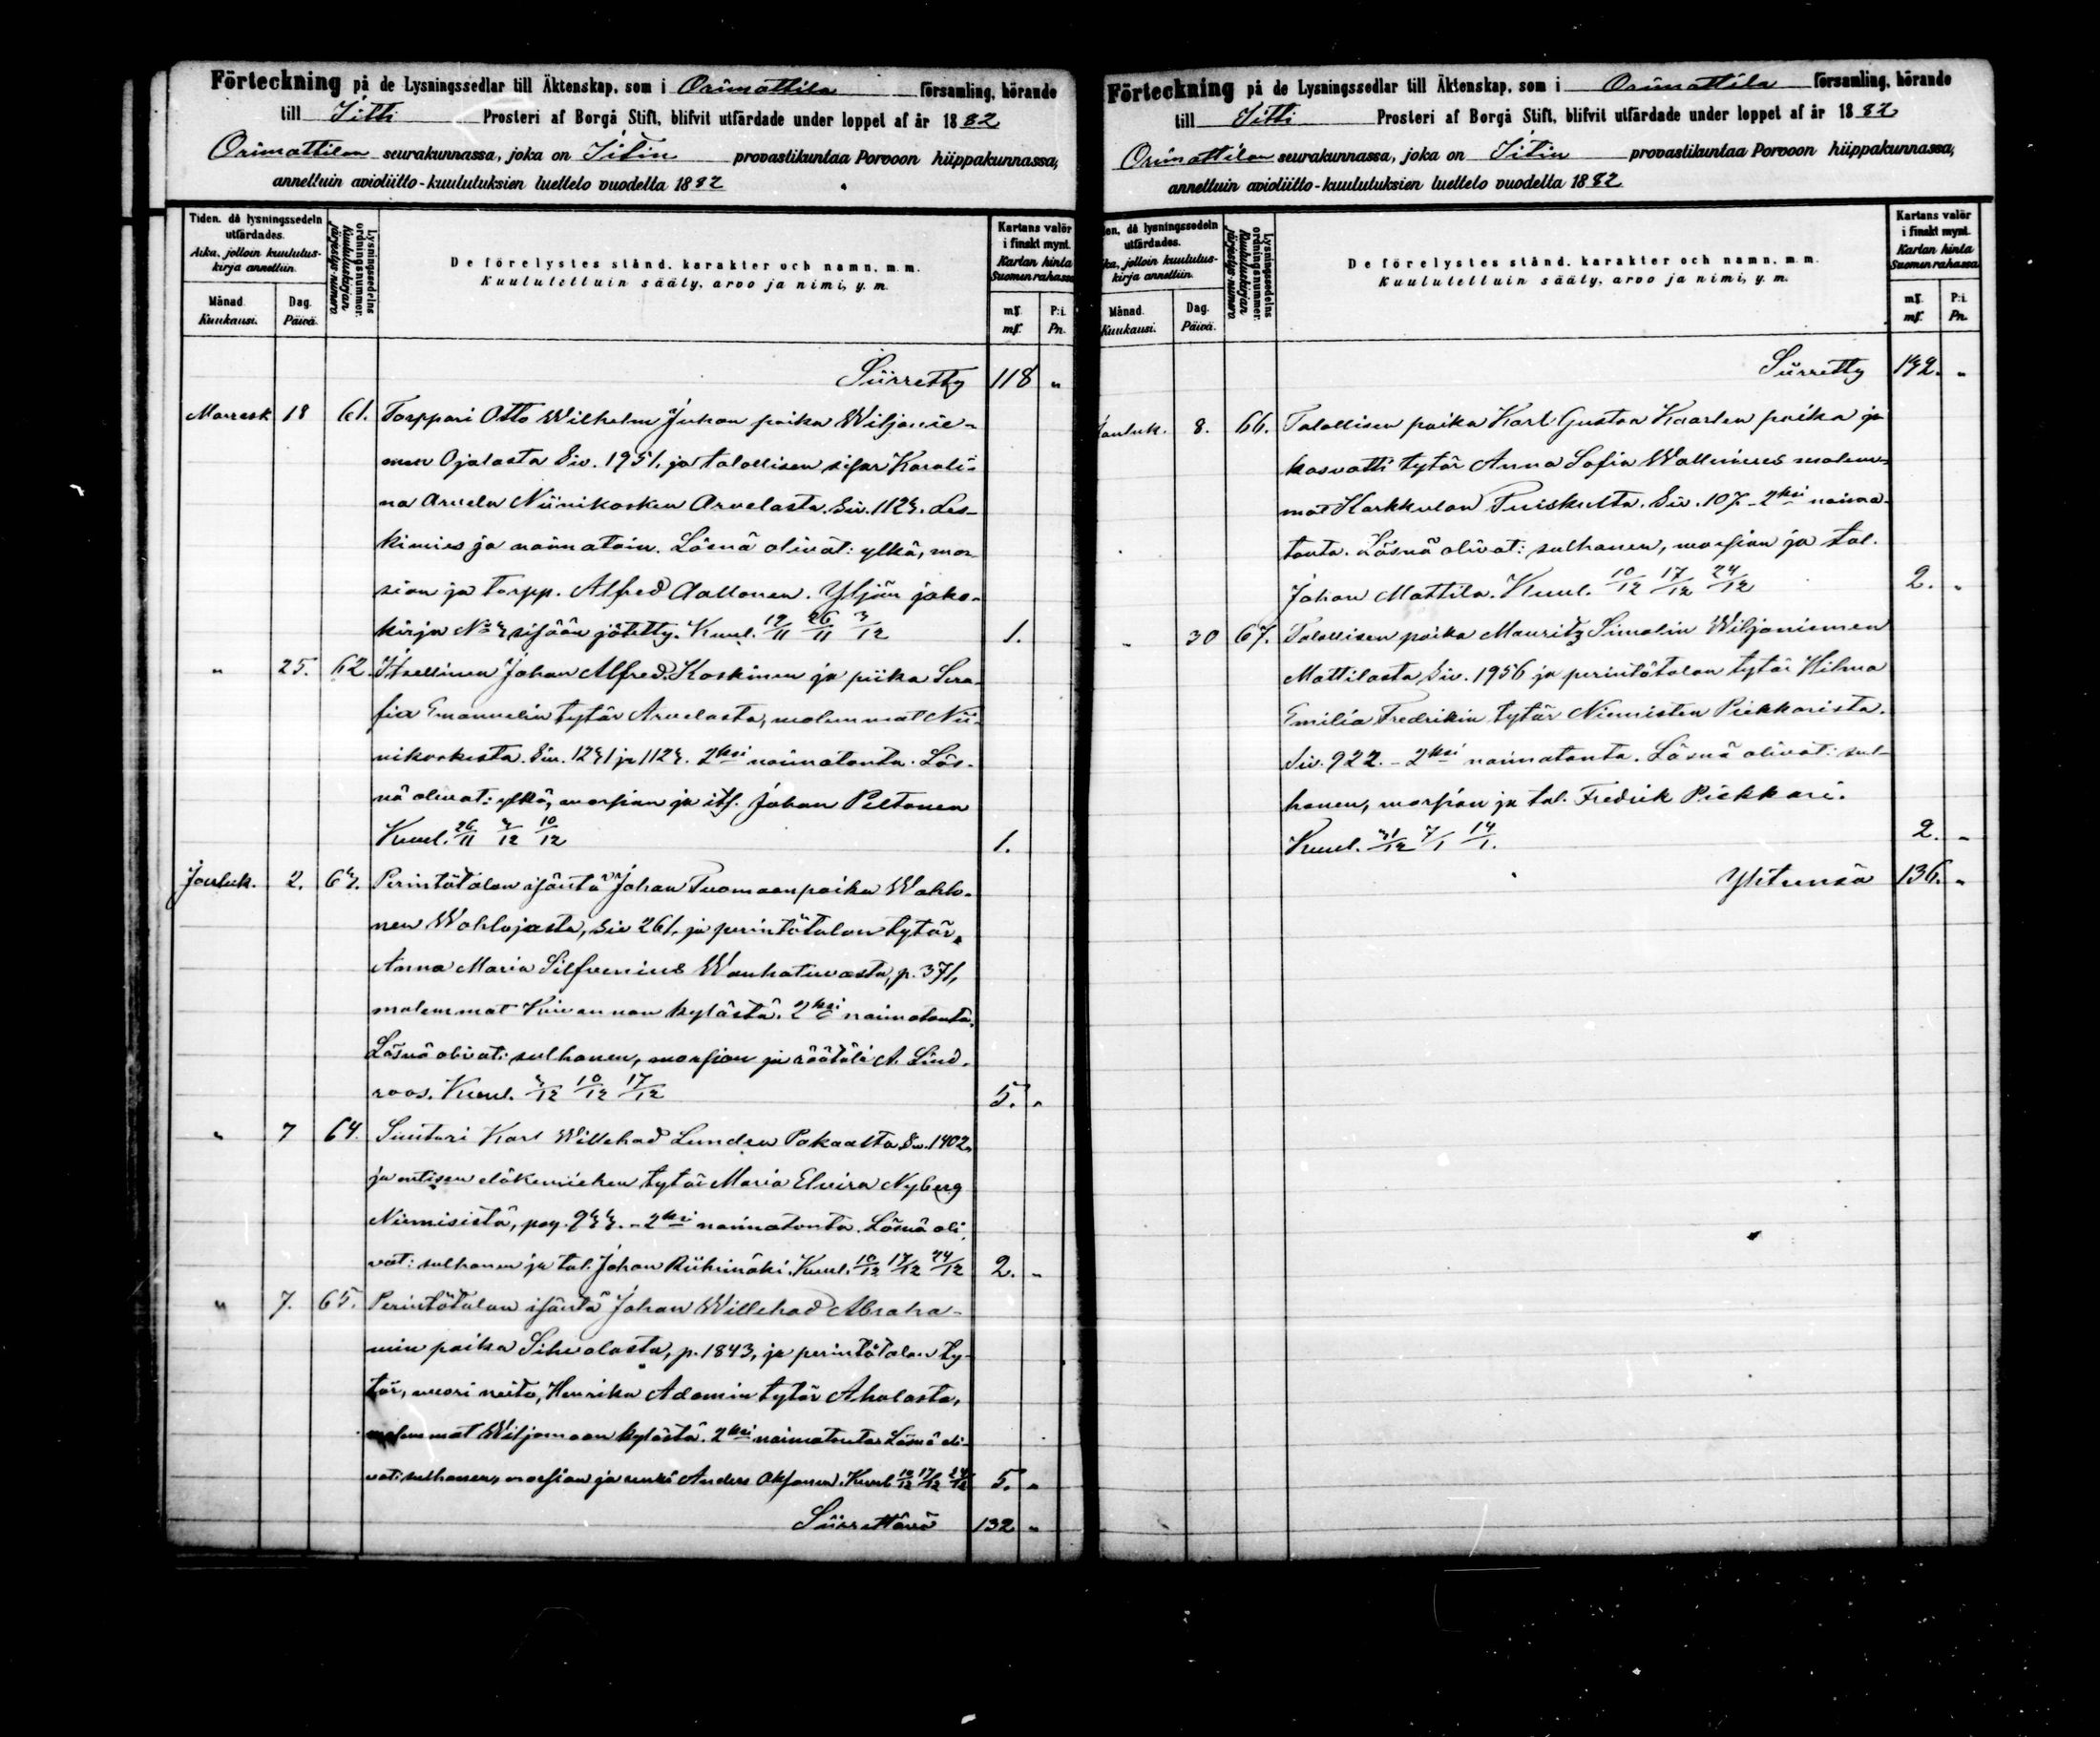 Förteckning på de Lysningssedlar till Äktenskap, som i Orimattila församling, hörande
till Iitti Prosteri af Borgå Stift, blifvit utfärdade under loppet af år 1882
Orimattilan seurakunnassa, joka on Iitin provastikuntaa Porvoon hiippakunnassa,
annettuin avioliitto-kuulutuksien luettelo vuodelta 1882
Tiden, då lysningssedeln utfärdades.
Aika, jolloin kuulutus-kirja annettiin.
Månad. Kuukausi.
Dag. Päivä.
Lysningssedelns ordningsnummer.
Kuulutuskirjan järjestys-numero
De förelystes stånd, karakter och namn, m. m.
Kuulutelluin sääly, arvo ja nimi, y. m.
Kartans valör i finskt mynt.
Kartan hinta Suomen rahassa
mf. P:i.
mf. Pn.
Siirretty 118 „
Marrask 18 61. Torppari Otto Wilhelm Juhan poika Wiljanie-
men Ojalasta Siv. 1951, ja talollisen sisar Karoli-
na Arvela Niinikosken Arvelasta. Siv. 1123. Les-
kimies ja naimatoin. Läsnä olivat: ylkä, mor-
sian ja torpp. Alfred Aaltonen. Yljän jako-
kirja No 3 sisään jätetty. Kuul. 19/11 26/11 3/12 1.
„ 25. 62. Itsellinen Johan Alfred Koskinen ja piika Sera-
fia Emanuelin tytär Arvelasta, molemmat Nii-
nikoskesta. Siv. 1231 ja 1123. 2ksi naimatonta. Läs-
nä olivat: ylkä, morsian ja its. Johan Peltonen
Kuul. 26/11 3/12 10/12 1.
Jouluk. 2. 63. Perintötalon isäntä Johan Tuomaanpoika Wahlo-
nen Wahlojasta, Siv 261, ja perintötalon tytär
Anna Maria Silfvenius Wanhatuvasta, p. 371,
molemmat Kuivannon kylästä. 2ksi naimatonta.
Läsnä olivat: sulhanen, morsian ja räätäli A. Lind-
roos. Kuul. 3/12 10/12 17/12 5. „
„ 7 64. Suutari Karl Willehad Lunden Pakaasta Siv. 1402,
ja entisen eläkemiehen tytär Maria Elvira Nyberg
Niemisistä, pag. 933. - 2ksi naimatonta. Läsnä oli-
vat: sulhanen ja tal. Johan Riihimäki. Kuul. 10/12 17/12 24/12 2. „
„ 7. 65. Perintötalon isäntä Johan Willehad Abraha-
min poika Sihvolasta, p. 1843, ja perintötalon ty-
tär, nuori neito, Henrika Adamin tytär Aholasta,
molemmat Wiljamaan kylästä. 2ksi naimatonta. Läsnä oli-
vat: sulhanen, morsian ja renki Anders Oksanen. Kuul 10/12 17/12 24/12 5. „
Siirrettävä 132 „
Förteckning på de Lysningssedlar till Äktenskap, som i Orimattila församling, hörande
till Iitti Prosteri af Borgå Stift, blifvit utfärdade under loppet af år 1882
Orimattilan seurakunnassa, joka on Iitin provastikuntaa Porvoon hiippakunnassa,
annettuin avioliitto-kuulutuksien luettelo vuodelta 1882
en, då lysningssedeln utfärdades.
ka, jolloin kuulutus-kirja annettiin.
Månad. Kuukausi.
Dag. Päivä.
Lysningssedelns ordningsnummer.
Kuulutuskirjan järjestys-numero
De förelystes stånd, karakter och namn, m. m.
Kuulutelluin sääly, arvo ja nimi, y. m.
Kartans valör i finskt mynt.
Kartan hinta Suomen rahassa
mf. P:i.
mf. Pn.
Siirretty 132. „
Jouluk. 8. 66. Talollisen poika Karl Gustaa Kaarlen poika ja
kasvatti tytär Anna Sofia Wallenius molem-
mat Karkkulan Puiskulta. Siv. 107 - 2ksi naima-
tonta. Läsnä olivat: sulhanen, morsian ja tal.
Johan Mattila. Kuul. 10/12 17/12 24/12 2. „
„ 30 67. Talollisen poika Mauritz Simolin Wiljaniemen
Mattilasta Siv. 1956 ja perintötalon tytär Hilma
Emilia Fredrikin tytär Niemisten Piekkarista.
Siv. 922. - 2ksi naimatonta. Läsnä olivat: sul-
hanen, morsian ja tal. Fredrik Piekkari.
Kuul. 31/12 7/1 14/1. 2. „
Yhteensä 136. „